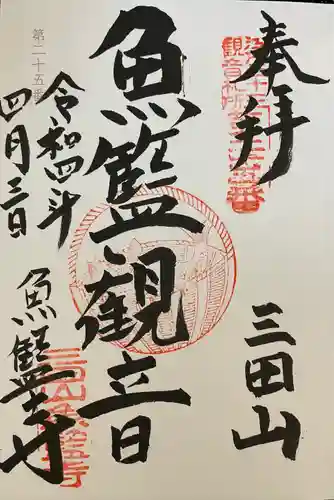 奉拝
三田山
魚籃観音
第二十五番
令和四年
四月三日
魚籃寺